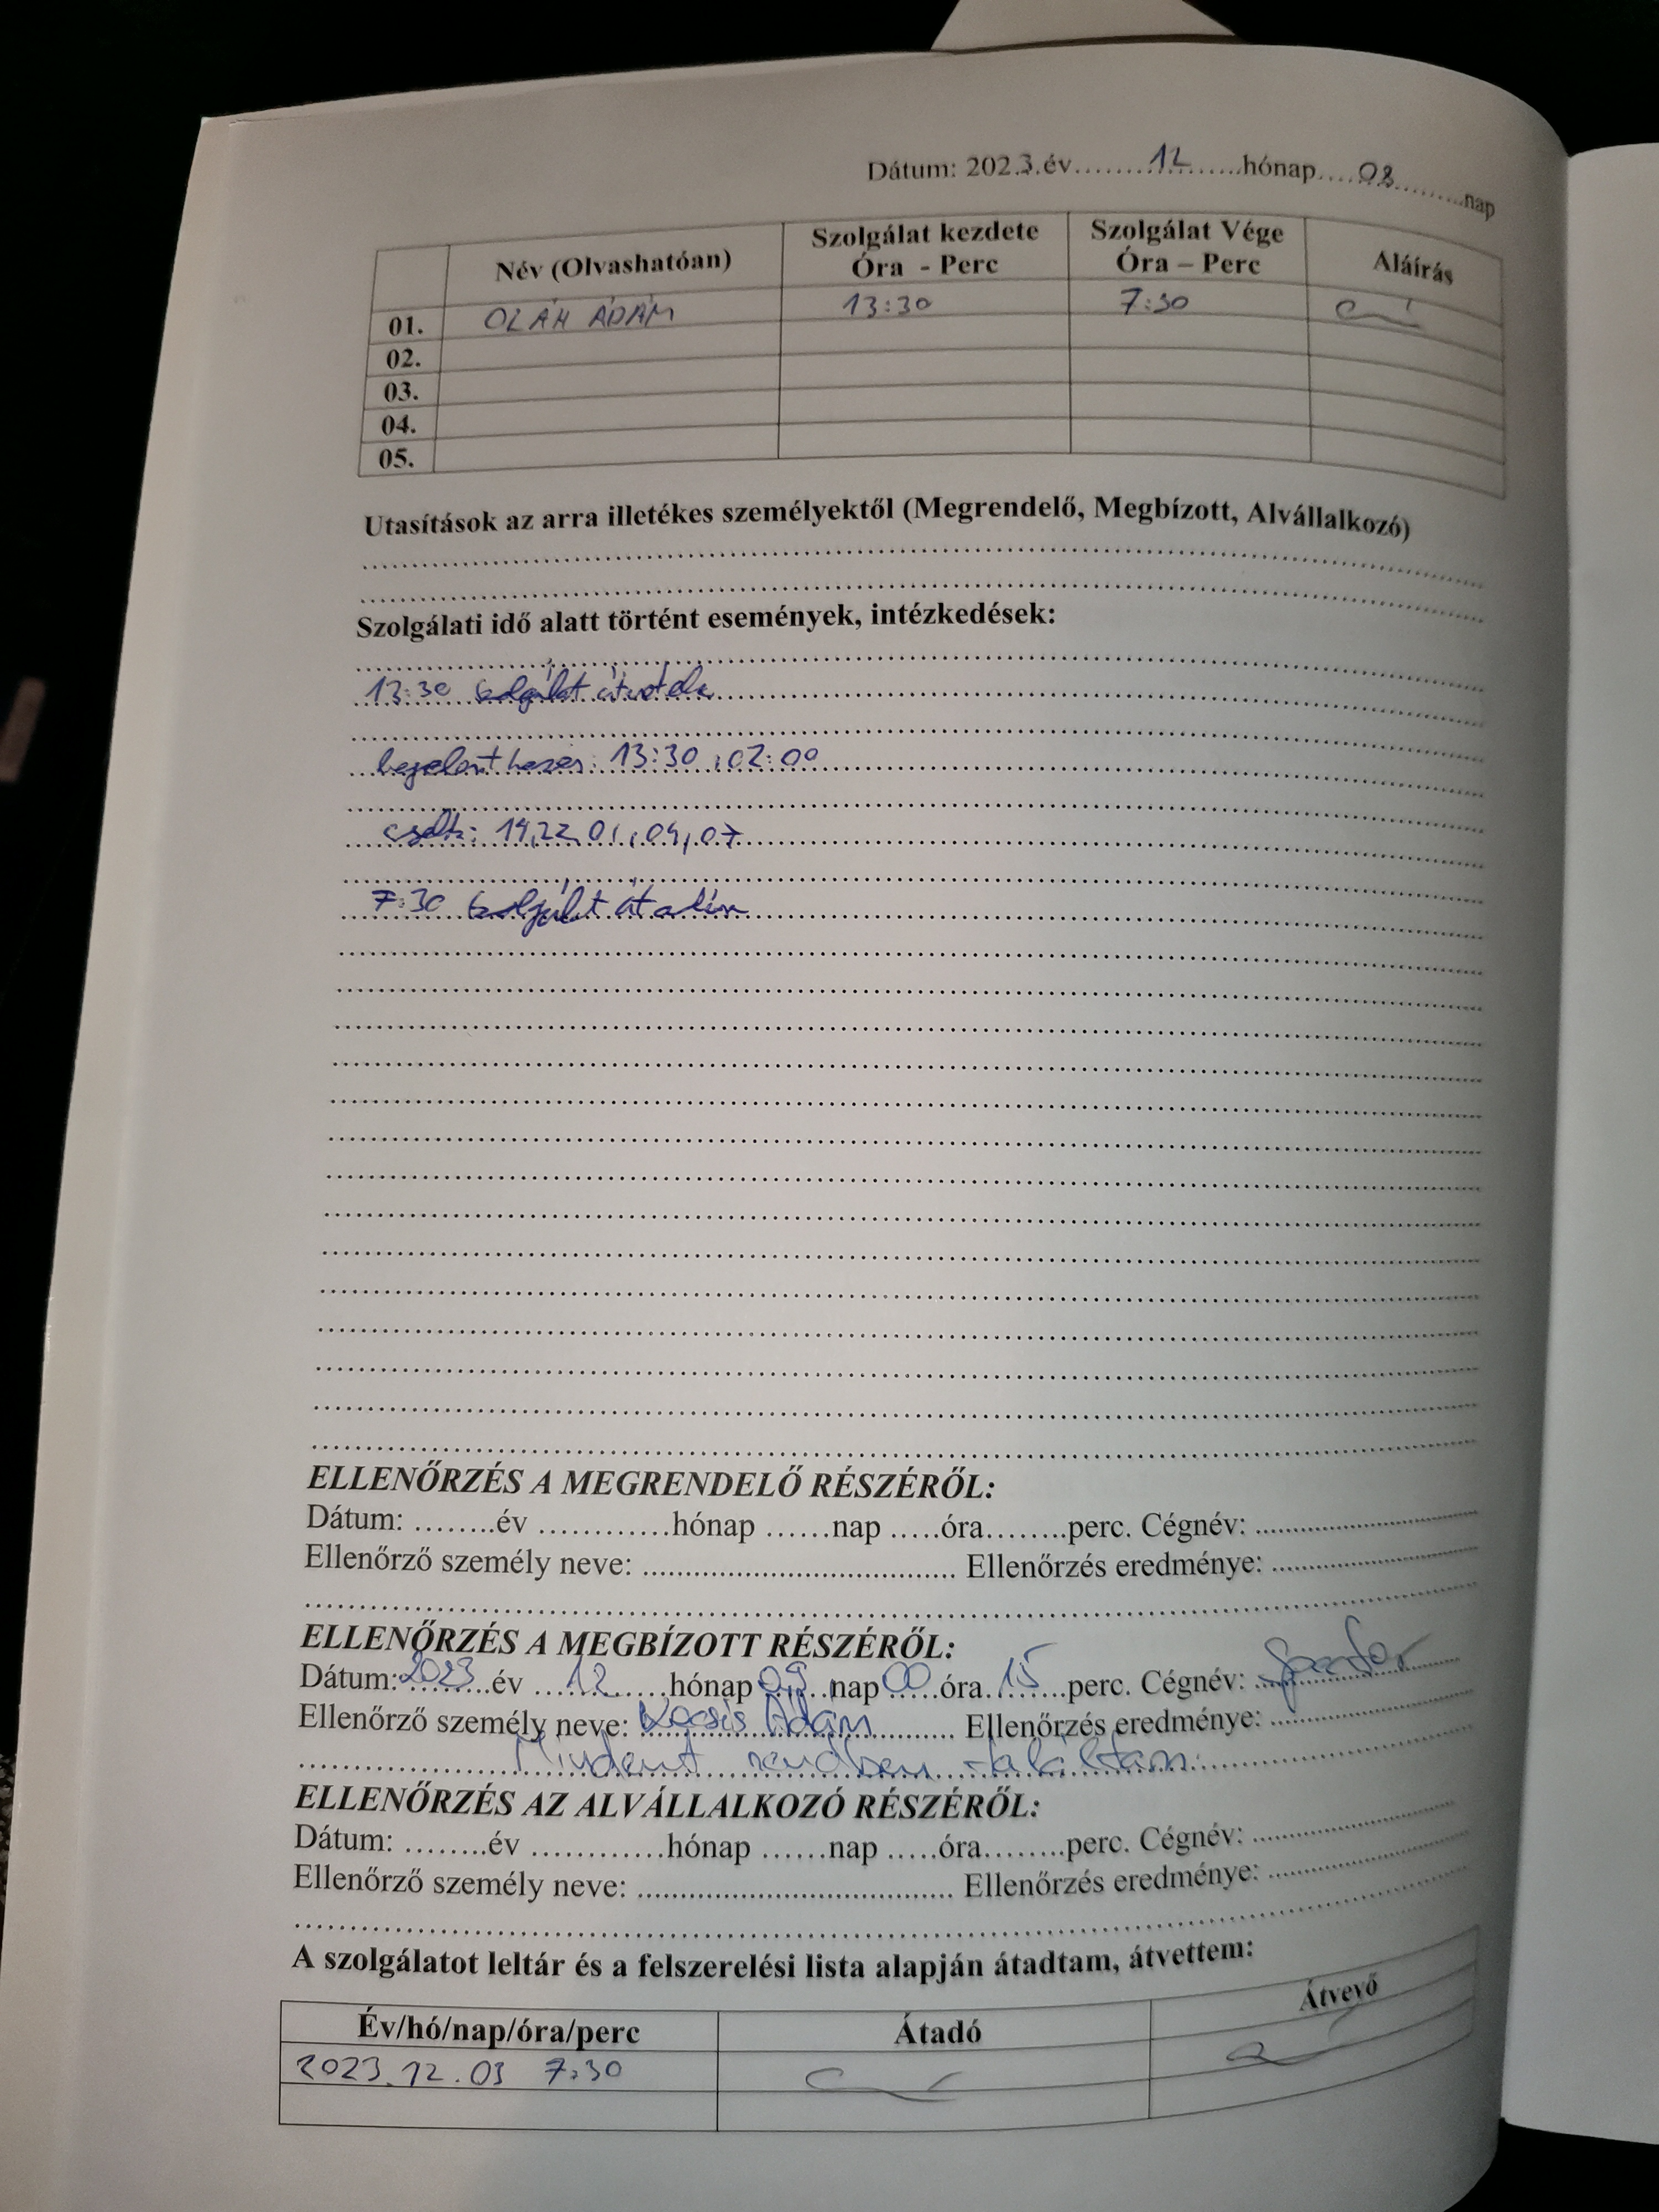 Dátum: 2023.év 12 hónap 08 nap
Név (Olvashatóan) Szolgálat kezdete Óra - Perc Szolgálat Vége Óra – Perc Aláírás
01. OLÁH ÁDÁM 13:30 7:30
02.
03.
04.
05.
Utasítások az arra illetékes személyektől (Megrendelő, Megbízott, Alvállalkozó)
Szolgálati idő alatt történt események, intézkedések:
13:30 szolgálat átvétele
bejelentkezés: 13:30, 02:00
19,22,01,04,07
7:30 szolgálat átadás
ELLENŐRZÉS A MEGRENDELŐ RÉSZÉRŐL:
Dátum: ........év ............hónap ......nap .....óra........perc. Cégnév:
Ellenőrző személy neve: Ellenőrzés eredménye:
ELLENŐRZÉS A MEGBÍZOTT RÉSZÉRŐL:
Dátum: 2023 év 12 hónap 09 nap 00 óra 15 perc. Cégnév:
Ellenőrző személy neve: Kocsis Ádám Ellenőrzés eredménye:
Mindent rendben találtam.
ELLENŐRZÉS AZ ALVÁLLALKOZÓ RÉSZÉRŐL:
Dátum: ........év ............hónap ......nap .....óra........perc. Cégnév:
Ellenőrző személy neve: Ellenőrzés eredménye:
A szolgálatot leltár és a felszerelési lista alapján átadtam, átvettem:
Év/hó/nap/óra/perc Átadó Átvevő
2023.12.03 7:30